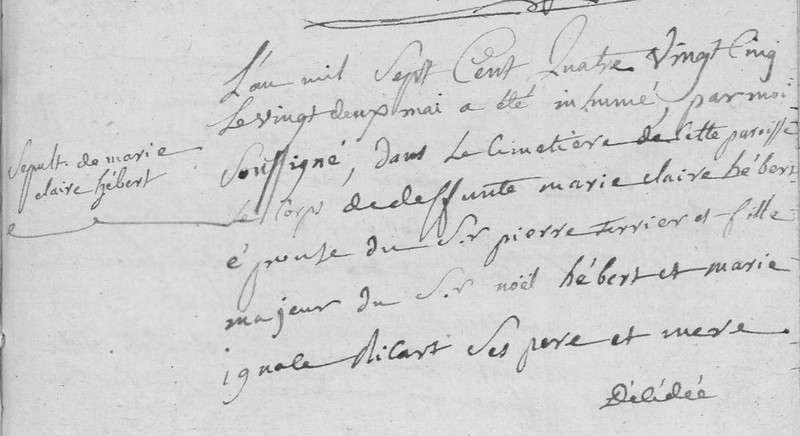 Sepult. de marie
claire hébert
L'an mil Sept Cent Quatre Vingt Cinq
Le vingt deux mai a été inhumé, par moi
Soussigné, dans Le Cimetière de Cette paroisse
Le Corps de deffunte marie claire hébert
épouse du S.r pierre terrier et fille
majeur du S.r noël hébert et marie
ignale Ricart Ses pere et mere
Délédée